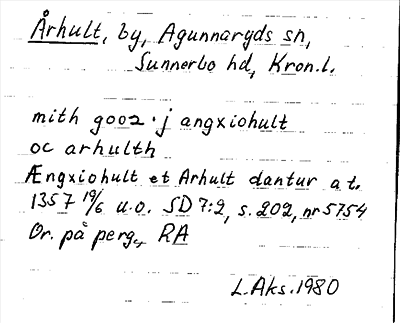 Århult, by, Agunnaryds sn,
Sunnerbo hd, Kron.l.
mith gooz · j angxiohult
oc arhulth
Ængxiohult et Arhult dantur a.t.
1357 19/6 u.o. SD 7:2, s. 202, nr 5754
Or. på perg., RA
L.Aks. 1980